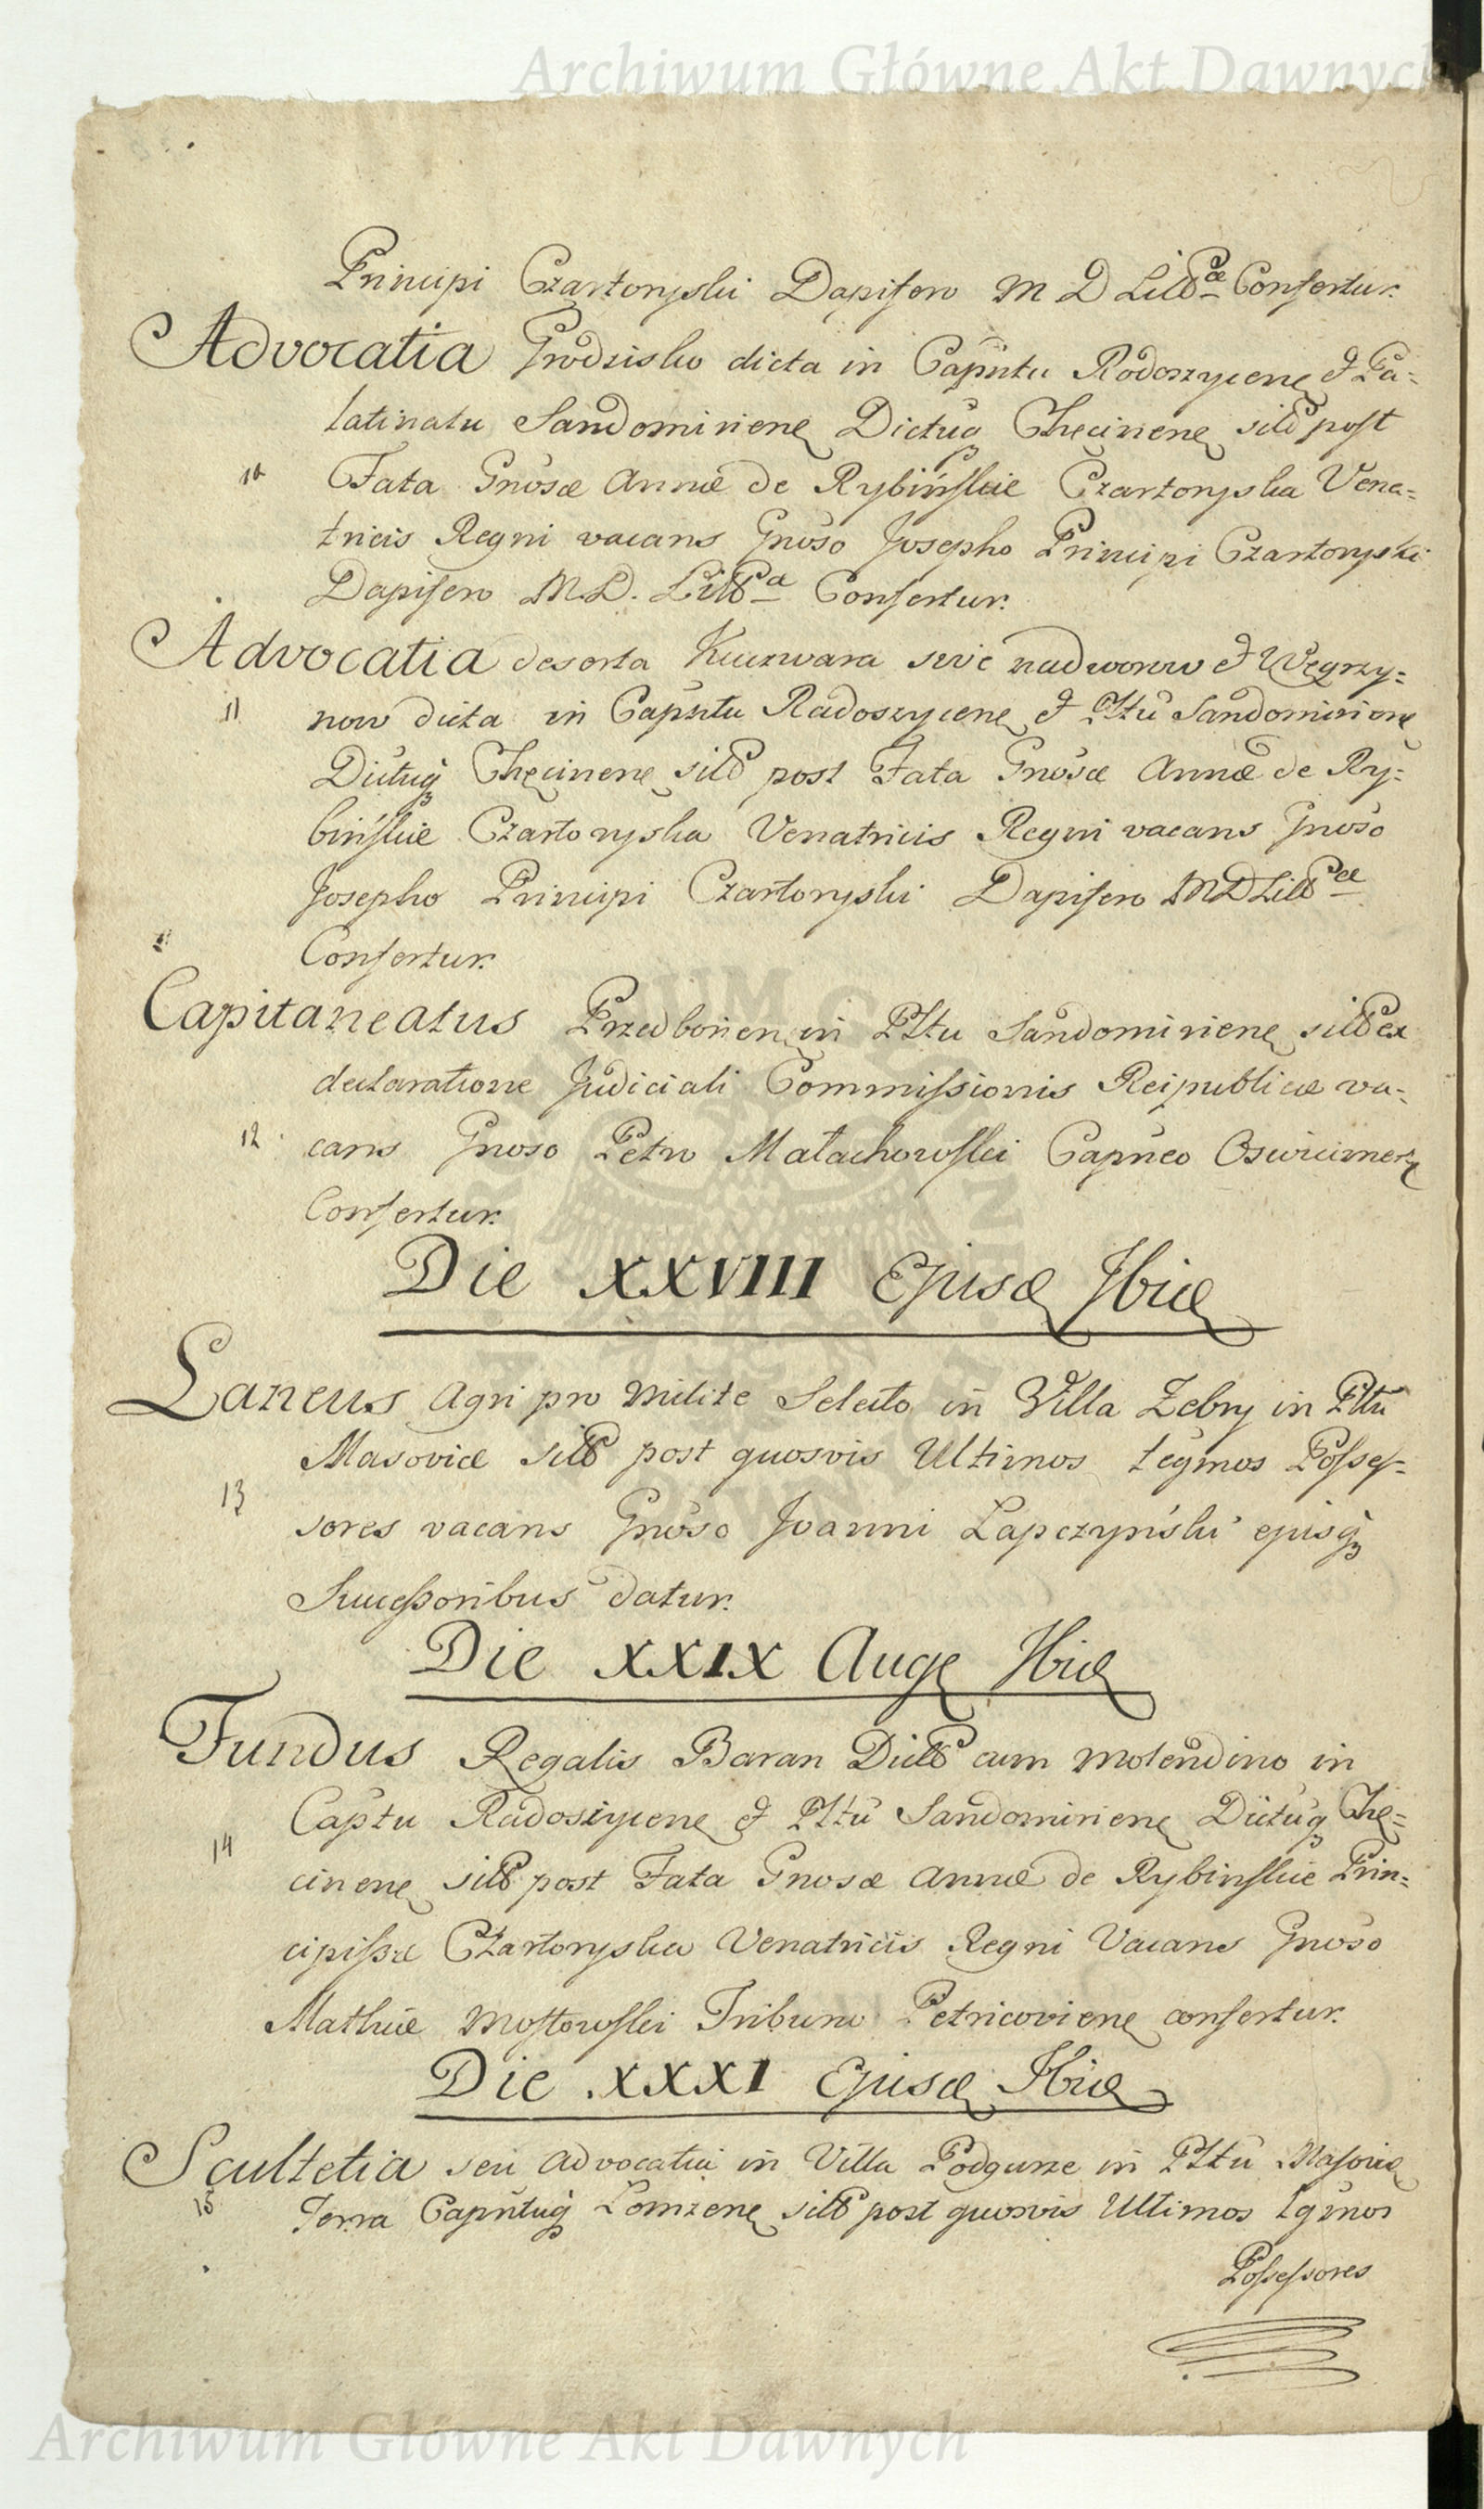 Archiwum Główne Akt Dawnych
Principi Czartoryski Dapifero M D Litt Confertur.
Advocatia Grodzisko dicta in Capntu Radoszycenę & Pa=
latinatu Sandomirienę Dictuq Chęcinenę sitt post
10 Fata Gnosæ Annæ de Rybińskie Czartoryska Vena=
tricis Regni vacans Gnoso Josepho Principi Czartoryski
Dapifero M.D. Litt Confertur.
Advocatia deserta Kuzwara sive nadworow & Węgrzy=
11 now dicta in Capntu Radoszycenę & Pltu Sandomirienę
Dictuq Chęcinenę sitt post Fata Gnosæ Annæ de Ry=
bińskie Czartoryska Venatricis Regni vacans Gnoso
Josepho Principi Czartoryski Dapifero M D Litt
Confertur.
Capitaneatus Przedborien in Pltu Sandomirienę sitt ex
declaratione Judiciali Commissionis Reipublicæ va=
12 cans Gnoso Petro Małachowski Capneo Oswiecimenę
Confertur.
Die XXVIII Ejusd Hbid
Laneus Agri pro Milite Selecto in Villa Zebry in Pltu
Masoviæ sitt post quosvis Ultimos Legmos Posses=
13 sores vacans Gnoso Joanni Lapczyński ejusq
Successoribus datur.
Die XXIX Augę Hbid
Fundus Regalis Baran Dictt cum Molendino in
Captu Radoszycenę & Pltu Sandomirienę Dictuq Chę=
14 cinenę sitt post Fata Gnosæ Annæ de Rybinskie Prin=
cipissæ Czartoryska Venatricis Regni Vacans Gnoso
Mathiæ Mostowski Tribuno Petricovienę confertur.
Die XXXI Ejusd Hbid
Scultetia seu Advocatia in Villa Podgurze in Pltu Masoviæ
15 Terra Capntuq Lomzenę sitt post quosvis Ultimos Lgmos
Possessores
Archiwum Główne Akt Dawnych